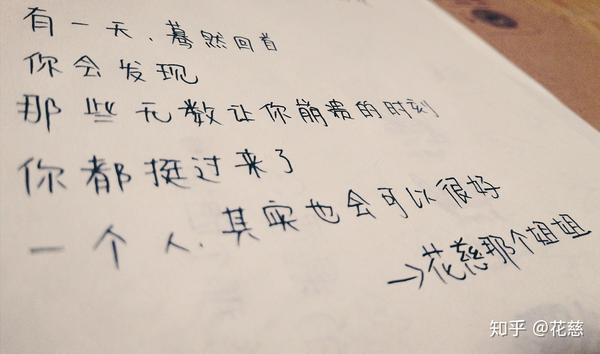 有一天、蓦然回首
你会发现
那些无数让你崩费的时刻
你都挺过来了
一个人.其实也会可以很好
→花慈那个姐姐
知乎 @花慈